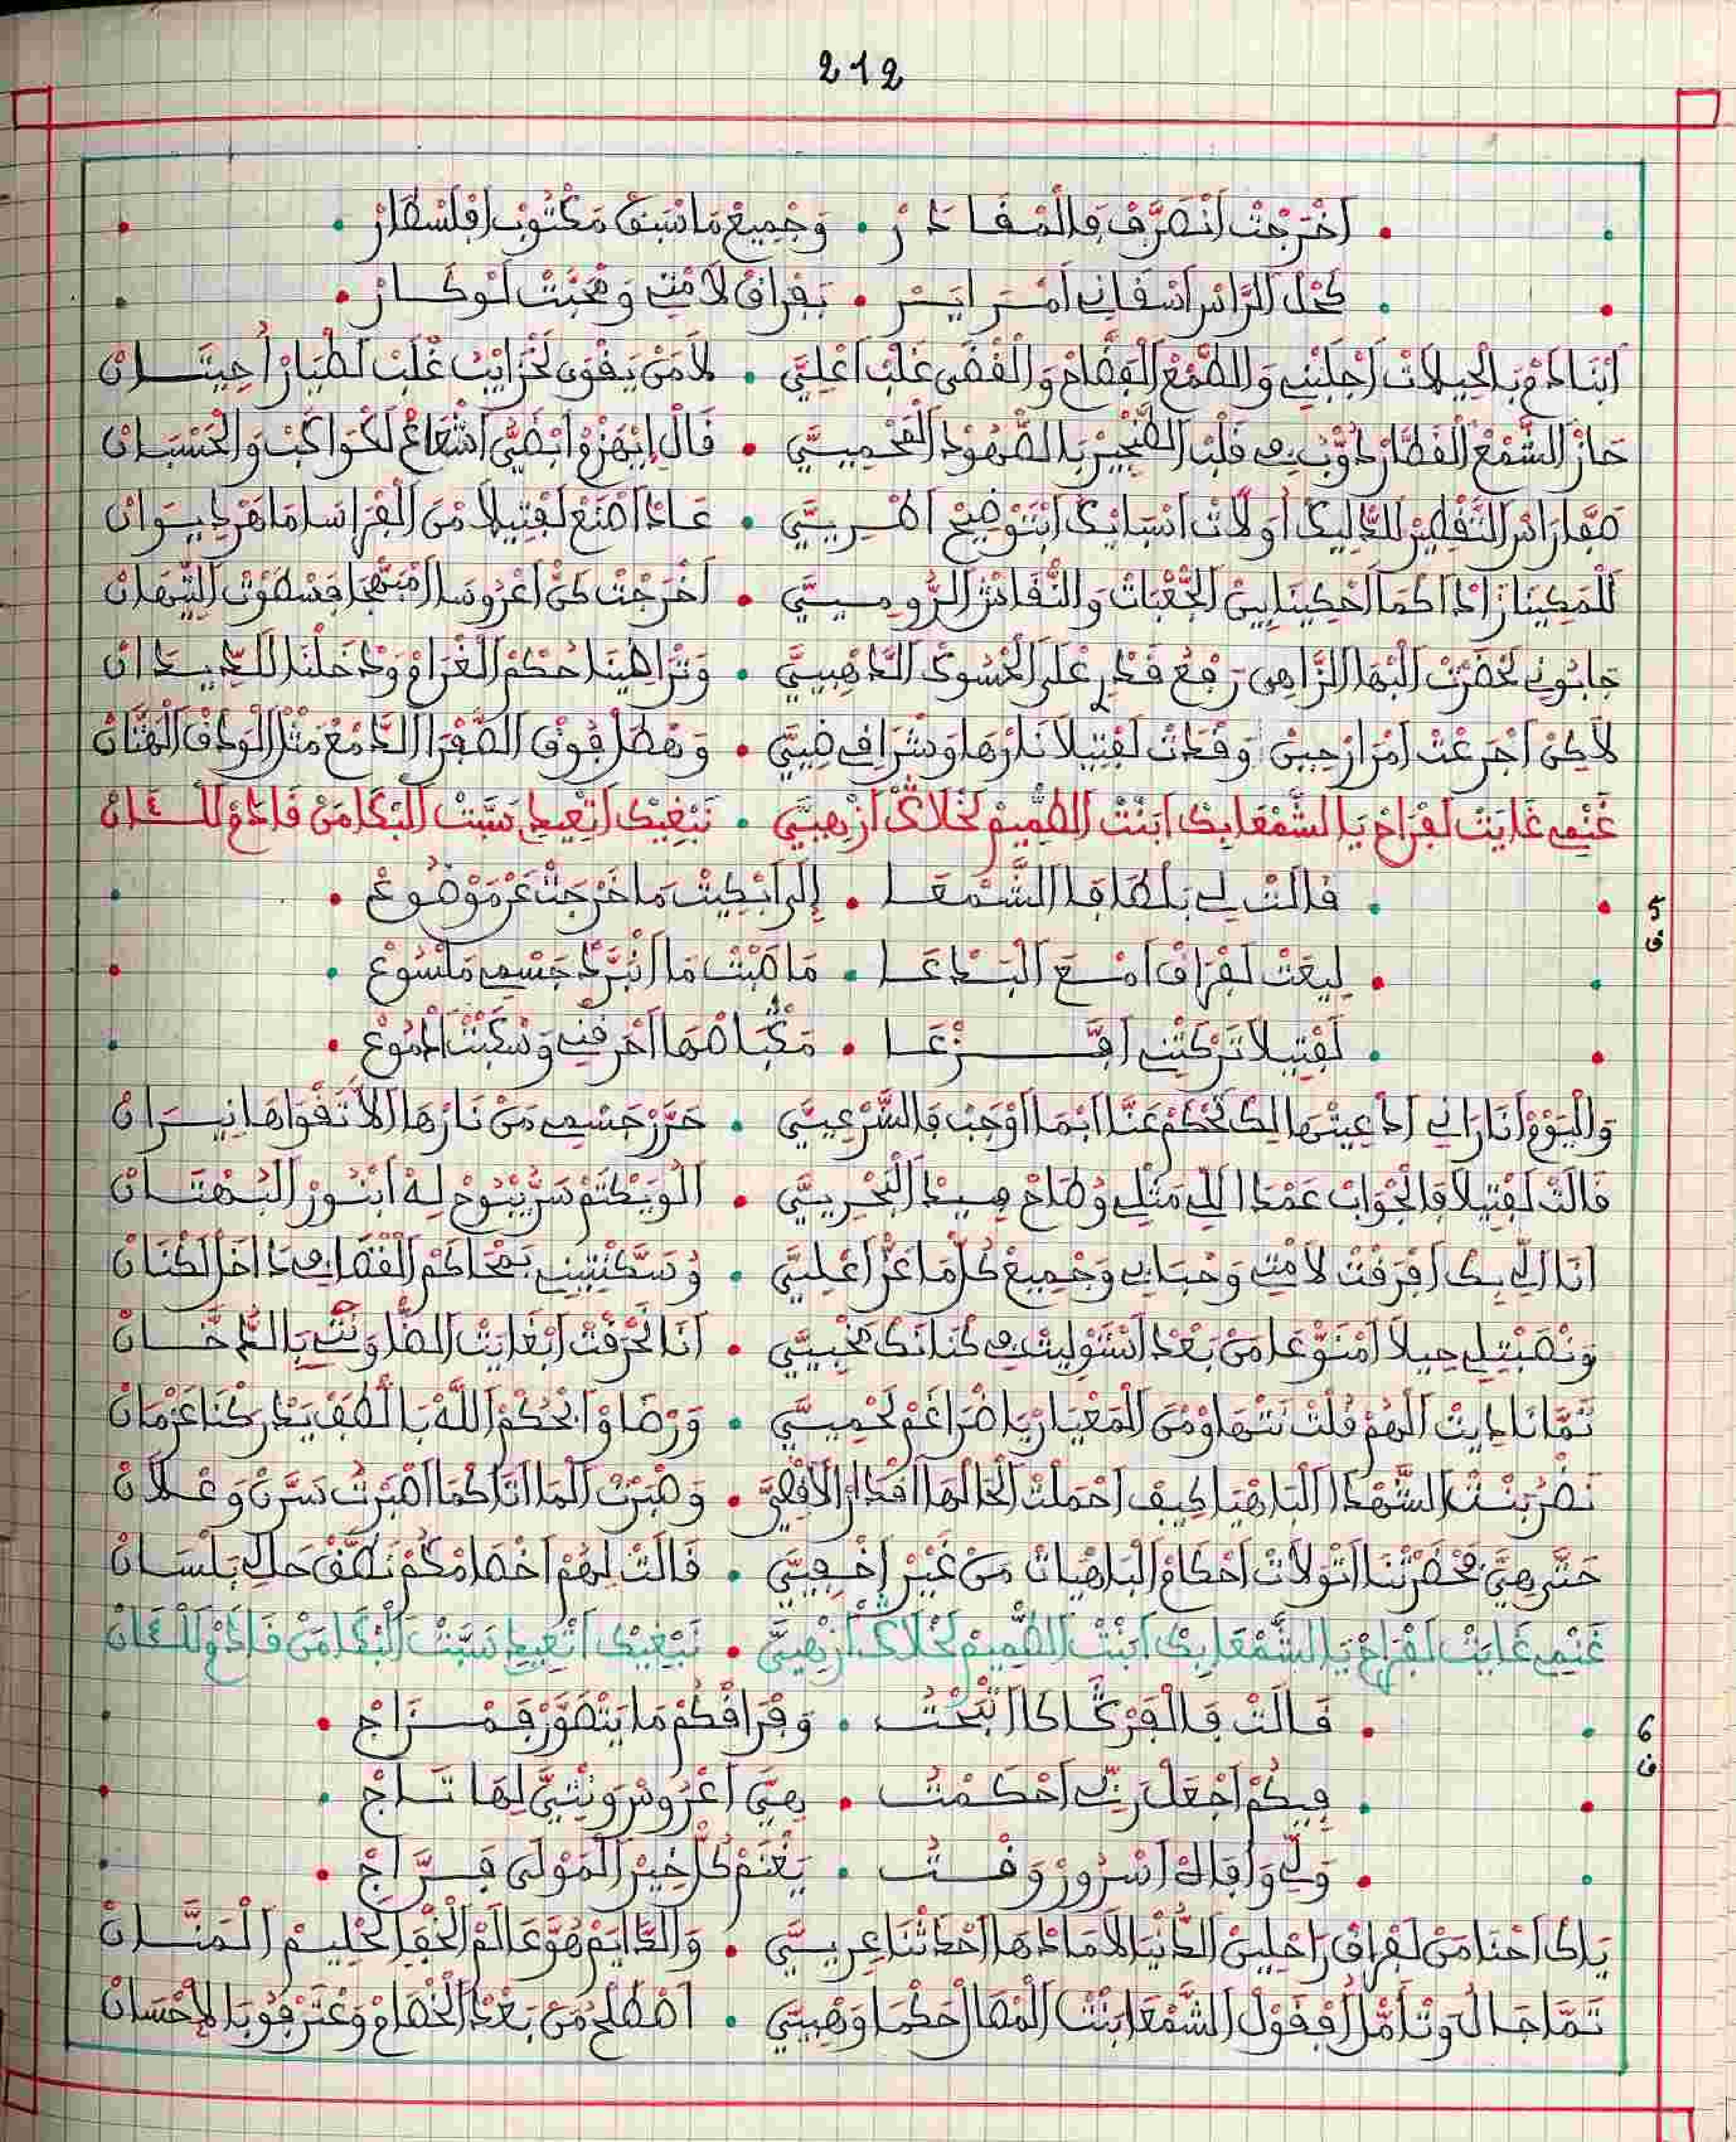 212
اخرجت انصرف فالمفادر • وجميع ماسبق مكتوب افلسطار
كحل الراس اسقاني امراير • بفراق لامتي ومحبت لوكار
ابنادم بالحيلات اجلبني والطمع الفضاح والقضى غلب اعليي • لامن يقوى لحرايب غلب لطيار احيتان
حاز الشمع القطار دوب في قلب الطنجير بالصهود الفحميي • قال ابهزو ايضي اشعاع لكواكب والحسبان
صفار التقطير اولات اسبايك ابتوضيح • عاد اصنع لفتيلا من الفرا
للمكينا كما احكينا بين الجعبات والنفاش الروميي • اخرجت كن اعروسا فسطوت التيهان
جابوني لحضرت البها الزاهي رفع قدر على الحسوك الدهبيي • وتراهينا حكم الغرام ودخلنا للديدان
لاكن اجرعت امرار حين وقدت لفتيلا نارها • وهطل فوق الصفرا الدمع مثل الودق الهتان
غنمي غايت لفراح يا الشمعا بك ابنت الطميم لخلاك ازهيي • نبغيك اتعيد سبت البكا من قادم للان
5 ق
قالت لي بلطافا الشمعا • إلى ابكيت ما خرجت عن موضوع
ليعت لفراق امع البدعا • ما صبت ما انبرد جسمي ملسوع
لفتيلا تركتني افزعا • احرقني وسكبت ادموع
واليوم انا راني ادعيتها لك تحكم عنا ابما اوجب فالشرعيي • حرر جسمي من نارها لا تقواها نيران
قالت لفتيلا فالجواب عمدا اللي مثلي وطاح صيد البحريي • الو يكتم سر يبوح له ابنور البهتان
انا اللي بك افرقت لامتي وحبابي وجميع كل ما عز اعليي • وسكنتيني بمحاكم القضا في داخل لكنان
ونصبتي لي حيلا امنوعا من بعد استوليت في كنانك مخبيي • انا نحرقت ابغايت الضلو ونتي بالدخان
تما ناديت الهم قلت نتهاو من المعيار يا ضراغم لحميي • ورضاوا بحكم الله بالطف يدركنا عزمان
نضر بنت الشهدا الباهيا كيف احملت لحالها اقدار الاقصي • وصبرت لما اتاكما اصبرت سرن وعلان
حتى هي محضرتنا اتولات احكام الباهيات من غير اخفيي • قالت لهم اخصامكم نطف حال بلسان
غنمي غايت لفراح يا الشمعا بك ابنت الطميم لخلاك ازهيي • نبغيك اتعيد سبت البكا من قادم للان
6 ق
قالت فالفركا انبحت • وفراقكم ما يتصور فمزاج
فيكم اجعل ربي احكمت • هي اعروس ونتي لها تاج
ولي وافاك اسرور وقت • يغنم كل خير المولى فراج
ياك احنا من لفراق راحلين الدنيا لاما دها احدثنا عريي • والدايم هو عالم الخفا لحليم المنان
تما جال وتامل افقول الشمعا بنت المصال حكما وهبيي • اصطلح من بعد الخصام وعترفو بالاحسان